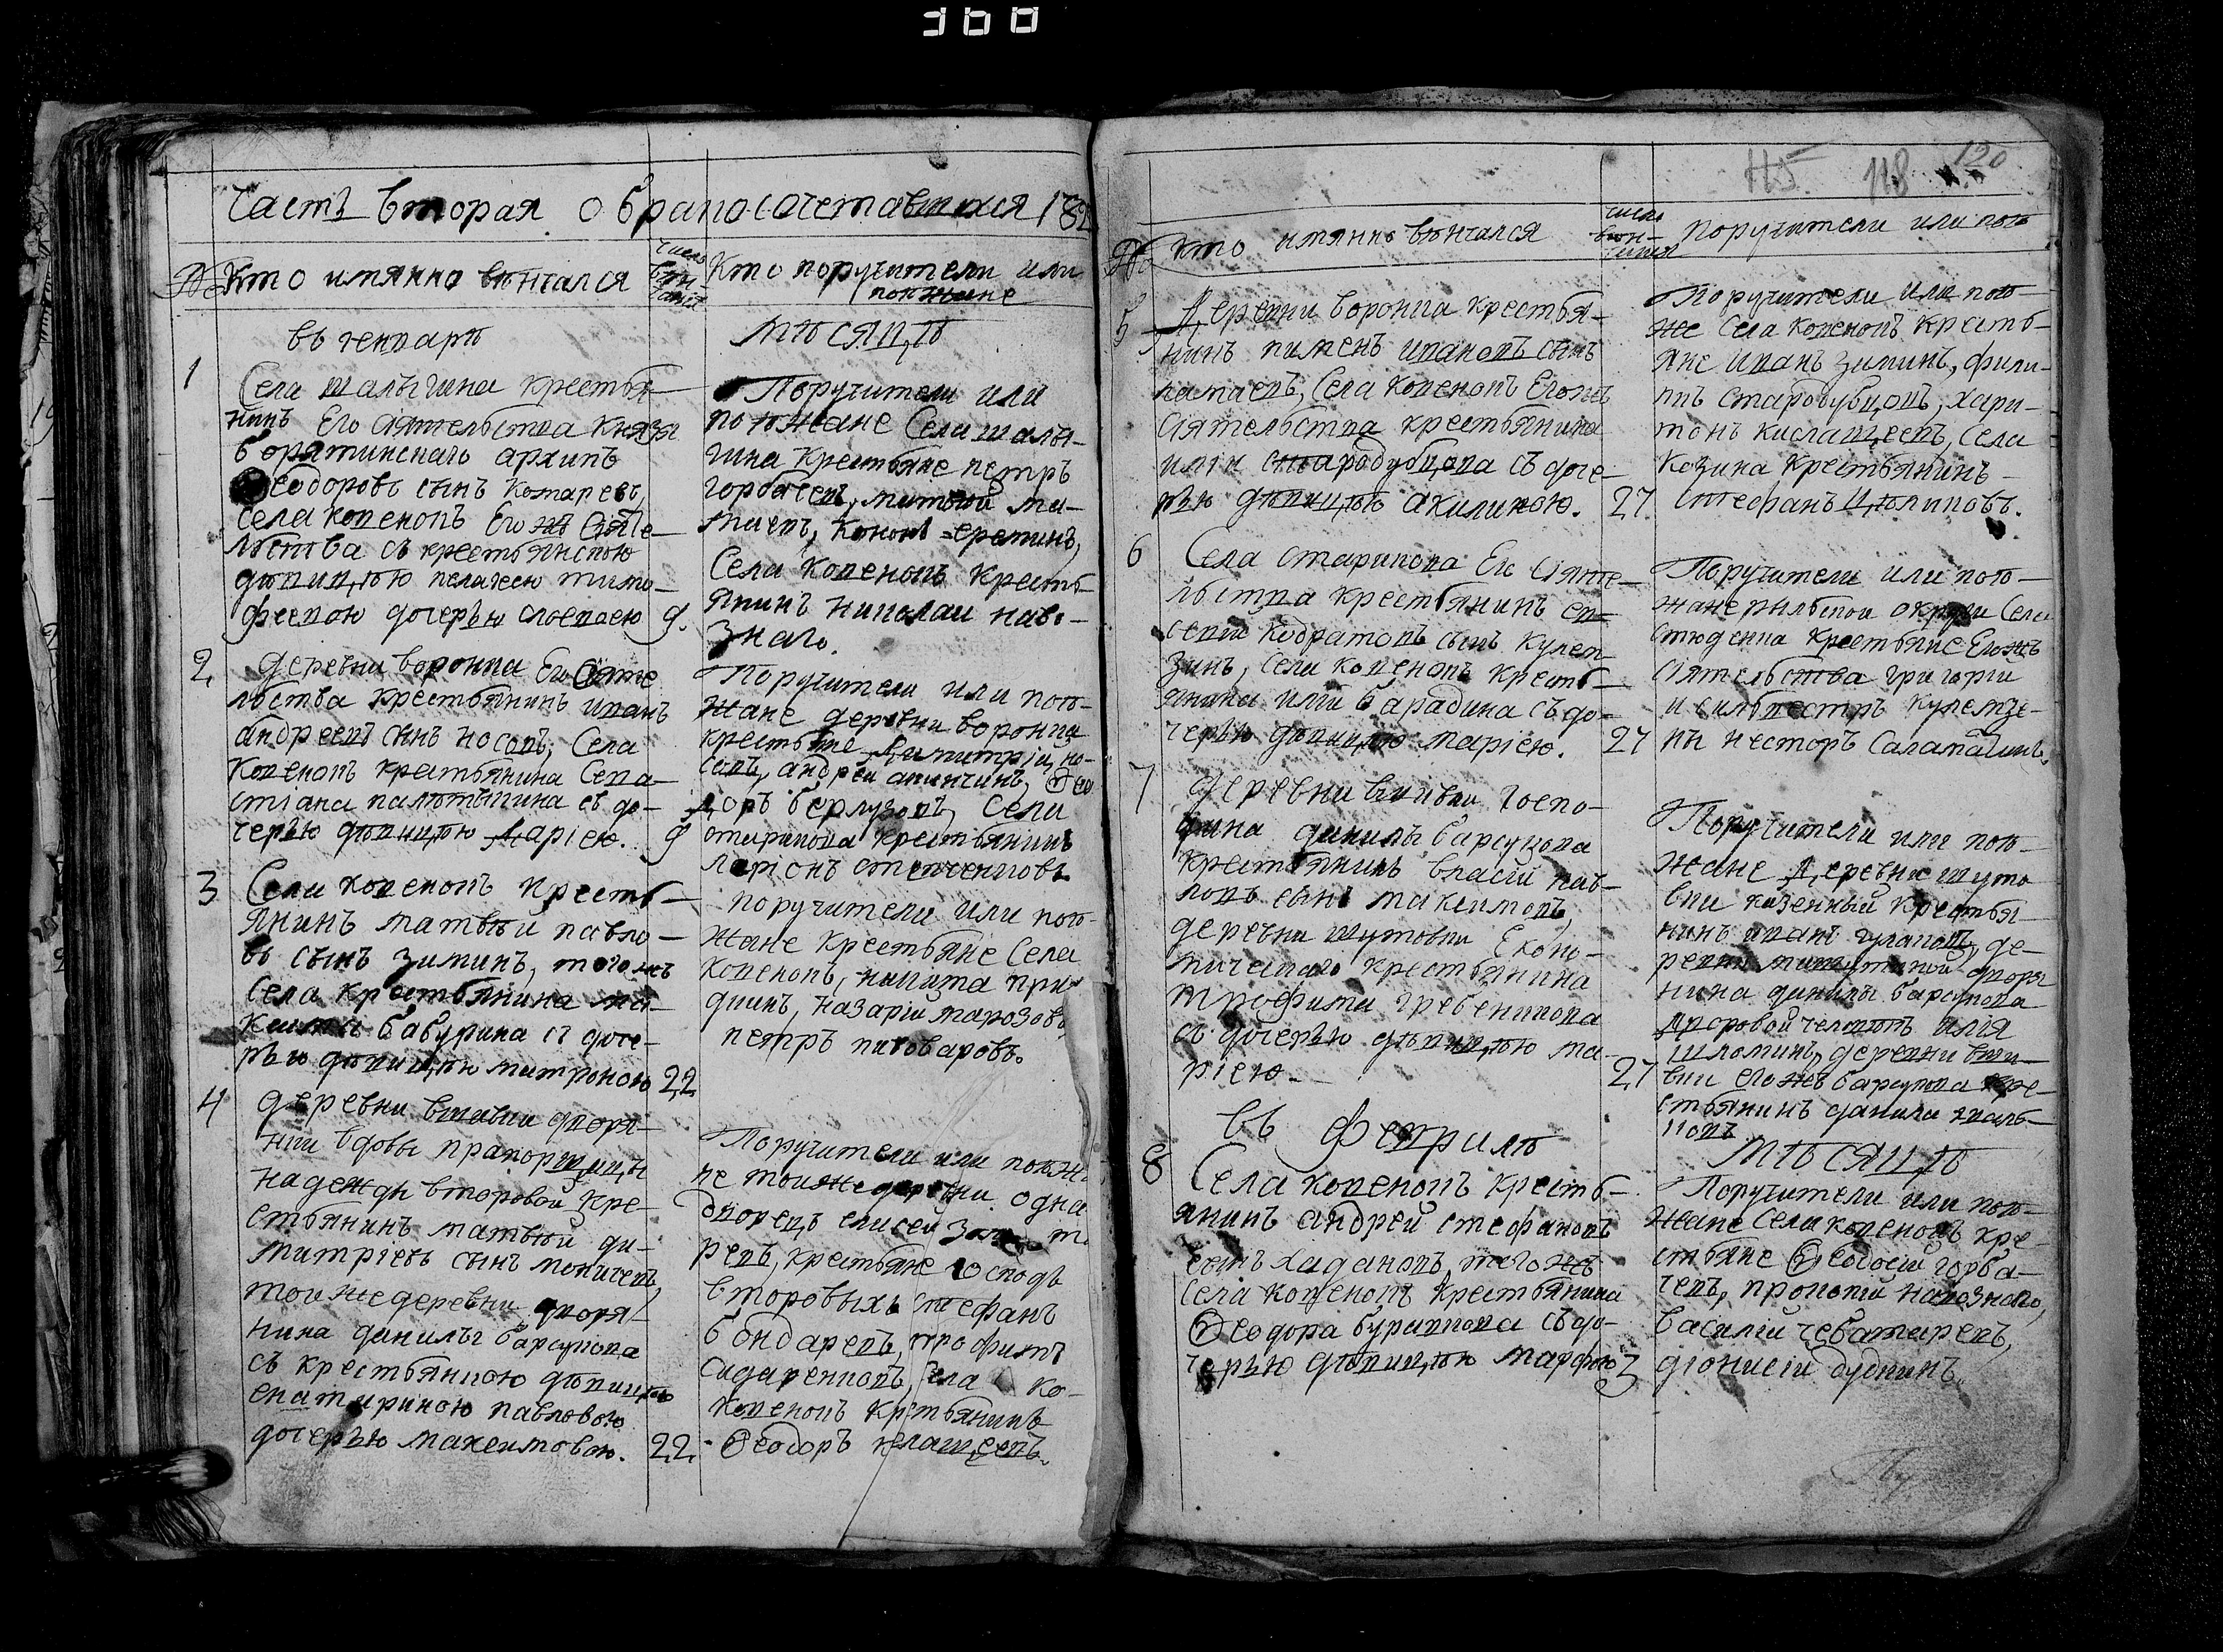 360
Часть вторая о бракосочетавшихся 182
№ Кто имянно венчался
Число вен-
чания
Кто поручители или
поежане
въ генваре
месяце
1
Села шалыгина крестья-
нинъ Его Сиятельства Князя
борятинскаго архипъ
Ѳеодоровъ сынъ Комаревъ,
села Копенопъ Его жъ Сияте-
льства съ крестьянскою
девицею пелагеею тимо-
феевою дочерью 9.
Поручители или
поежане Села шалы-
гина крестьяне петръ
горбачевъ, матвей
Кононъ еретинъ,
Села Копенопъ кресть-
янинъ николаи наво-
знаго.
2
деревни воронка Его Сияте
льства крестьянинъ иванъ
андреевъ сынъ носовъ, Села
Копенопъ крестьянина Сева-
стиана палютыгина съ до-
черью девицею Мариею. 9
Поручители или пое-
жане деревни воронка
крестьяне Димитрии но-
совъ, андреи апинчинъ, Ѳео
доръ берлузовъ, Села
старикова крестьянинъ
лариონъ степченковъ
3
Села копенопъ кресть-
янинъ матвей павло-
въ сынъ зиминъ, того жъ
Села крестьянина ма-
ксима бабурина съ доче-
рью девицею матроною 22
поручители или пое-
жане крестьяне Села
Копенопъ, никита при
дчинъ, назарии марозовъ
петръ пивоваровъ.
4
деревни вшивки дворя-
нки вдовы прапорщицы
надежды второвой кре-
стьянинъ матвей ди-
митриевъ сынъ
тои же деревни дворя-
нина данилы барсукова
съ крестьянкою девицею
екатериною павловою
дочерью максимовою. 22
Поручители или поежа
не тои же деревни одно
дворецъ елисеи
крестьяне Господъ
второвыхъ стефанъ
бондаревъ, трофимъ
сидаренковъ, села ко-
копенопъ крестьянинъ
Ѳеодоръ клащеевъ.
115 118 120
№ кто имянно венчался
число
вен-
чания
поручители или пое
5
Деревни воронка крестья-
нинъ пименъ ивановъ сынъ
латаевъ, Села копенопъ Егожъ
Сиятельства крестьянина
илии стародубцова съ доче-
рью девицею акилиною. 27
Поручители или пое-
жане Села копенопъ кресть-
яне иванъ зиминъ, фили-
ппъ стародубцовъ, хари-
тонъ кислащеевъ, Села
Козина крестьянинъ
стефанъ Целиковъ.
6
Села старикова Его Сияте-
льства крестьянинъ ев-
сеии Кодратовъ сынъ Кулем-
зинъ, Села копенопъ кресть-
янина илии барадина съ до-
черью девицею мариею. 27
Поручители или пое-
жане рыльской округи Села
студенка крестьяне Егожъ
Сиятельства григории
и сильвестръ кулемзи-
ны несторъ Саламатинъ.
7
Деревни вшивки госпо-
дина данилы барсукова
крестьянинъ власии пав-
ловъ сынъ максимовъ,
деревни шутовки Еконо-
мическаго крестьянина
трофима гребеникова
съ дочерью девицею ма-
риею. 27
Поручители или пое-
жане Деревни шуто
вки казенный крестья-
нинъ иванъ гулаповъ, де-
ревни дворя
нина данилы барсукова
дворовой человекъ илия
шломинъ, деревни вши-
вки его жъ барсукова кре-
стьянинъ данила
въ феврале
месяце
8
Села копенопъ кресть-
янинъ андрей стефановъ
сынъ хадановъ, того жъ
села копенопъ крестьянина
Ѳеодора буравкова съ до-
черью девицею марфою 3
Поручители или пое-
жане Села копеновъ кре-
стьяне Ѳеодосии горба-
чевъ, прокопии навознаго,
василии чеботаревъ,
дионисии дудкинъ.